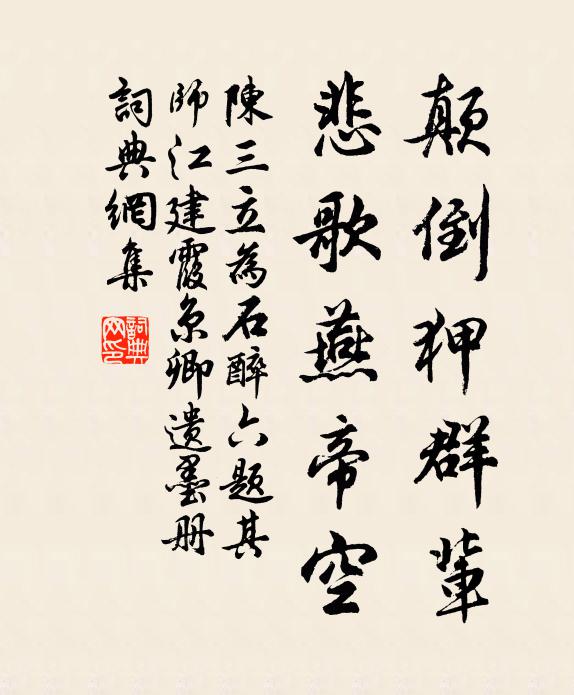 顛倒狎群輩
悲歌燕帝空
陳三立為石醉六題其
師江建霞京卿遺墨册
詞典網集
詞典
网印